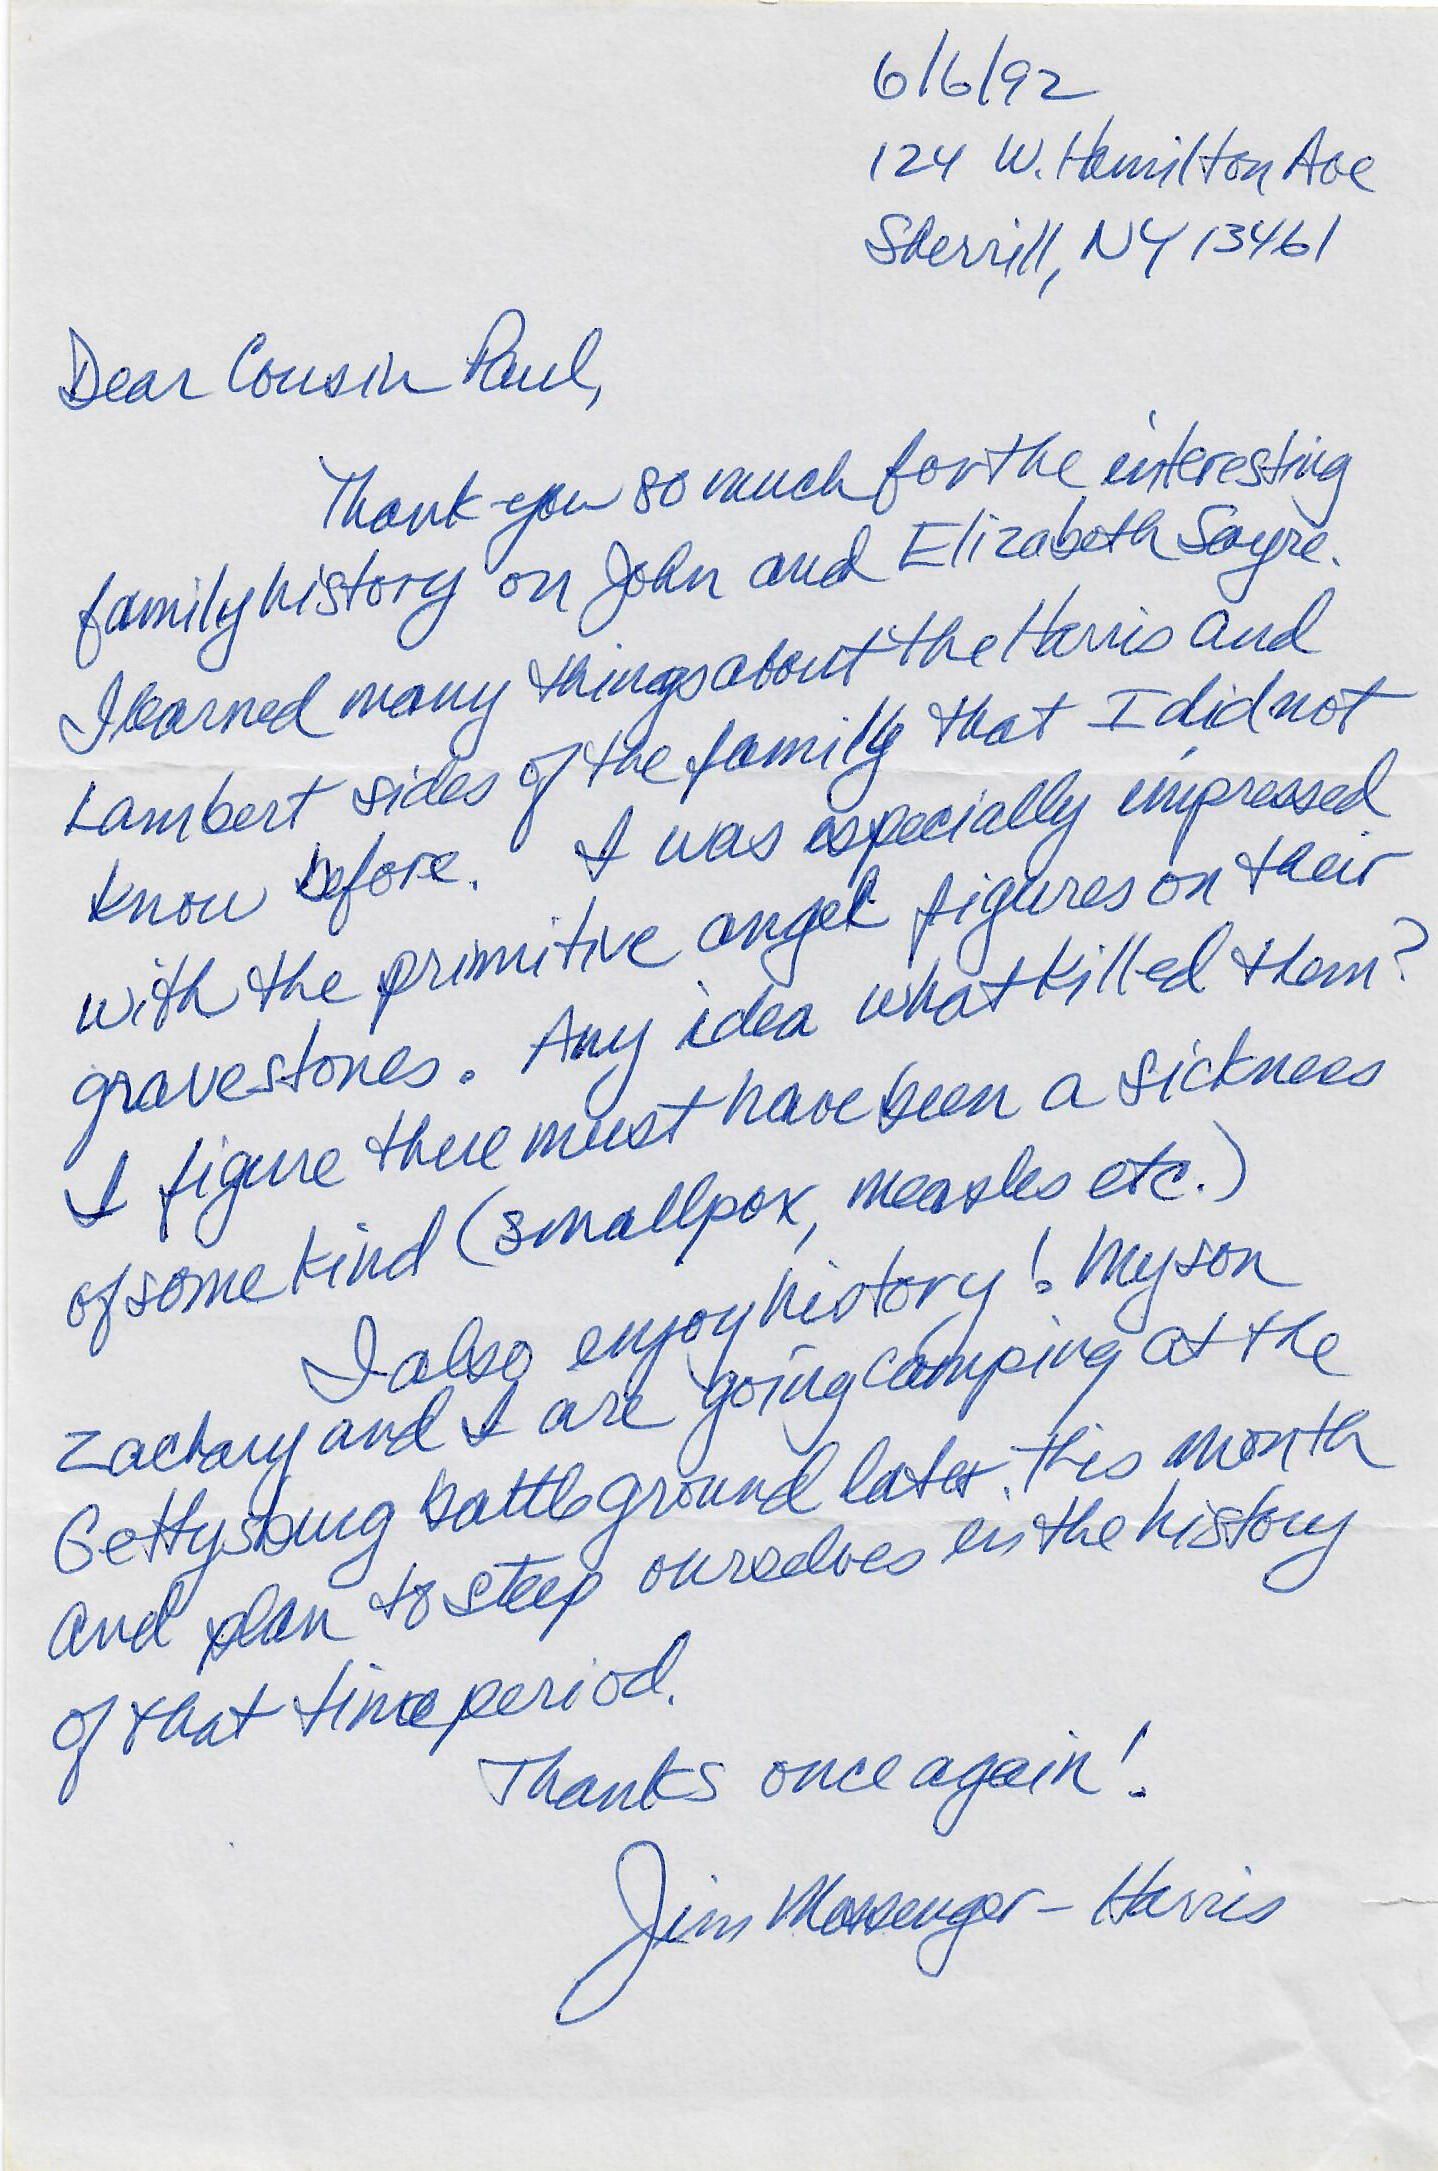 6/6/92
124 W. Hamilton Ave
Sherrill, NY 13461
Dear Cousin Paul,
Thank you so much for the interesting
family history on John and Elizabeth Sayre.
I learned many things about the Harris and
Lambert sides of the family that I did not
know before. I was especially impressed
with the primitive angel figures on their
gravestones. Any idea what killed them?
I figure there must have been a sickness
of some kind (smallpox, measles etc.)
I also enjoy history! My son
Zachary and I are going camping at the
Gettysburg battleground later this month
and plan to steep ourselves in the history
of that time period.
Thanks once again!
Jim Messenger - Harris